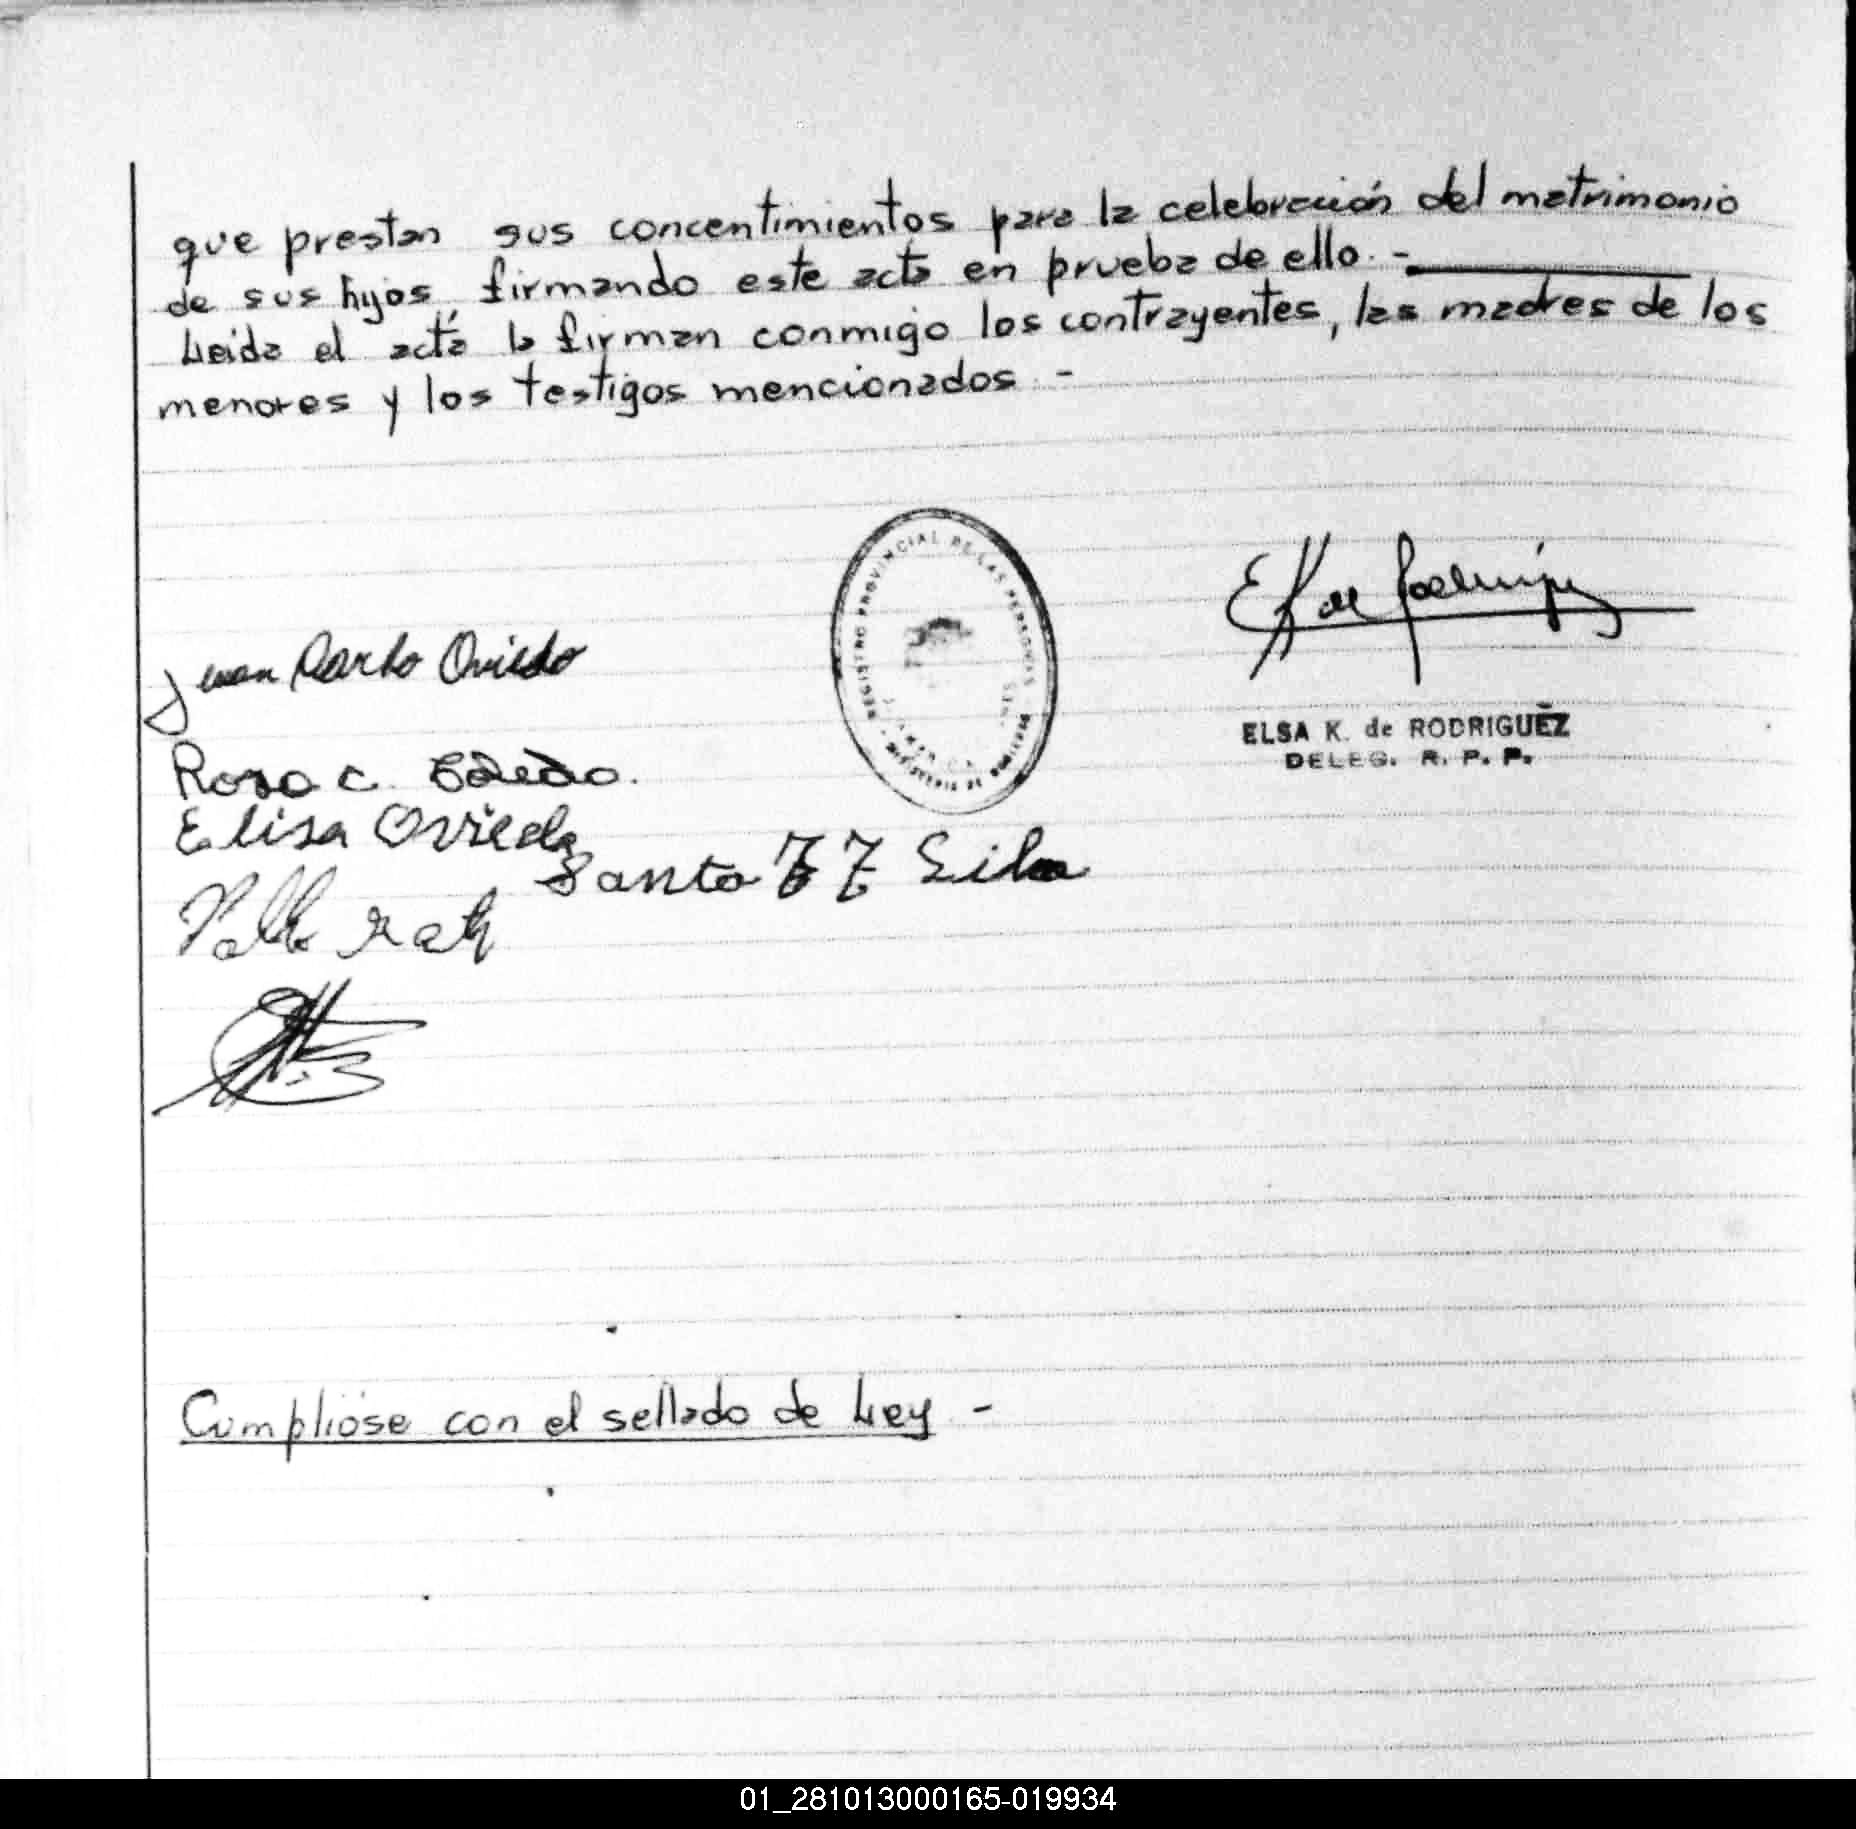 que prestan sus concentimientos para la celebración del matrimonio
de sus hijos, firmando este acta en prueba de ello. -
Leida el acta la firman conmigo los contrayentes, las madres de los
menores y los testigos mencionados -
REGISTRO PROVINCIAL DE LAS PERSONAS
Juan Carlo Oviedo
ELSA K. de RODRIGUEZ
DELEG. R. P. P.
Rosa C. Toledo.
Elisa Oviedo
Santo
Cumplióse con el sellado de Ley -
01_281013000165-019934